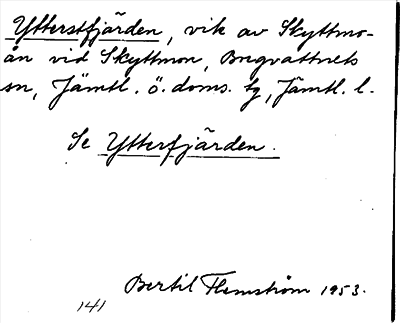 Ytterstfjärden, vik av Skyttmo-
ån vid Skyttmon, Bregvattnets
sn, Jämtl. ö. doms. tg, Jämtl. l.
Se Ytterfjärden.
Bertil Flemström 1953.
141